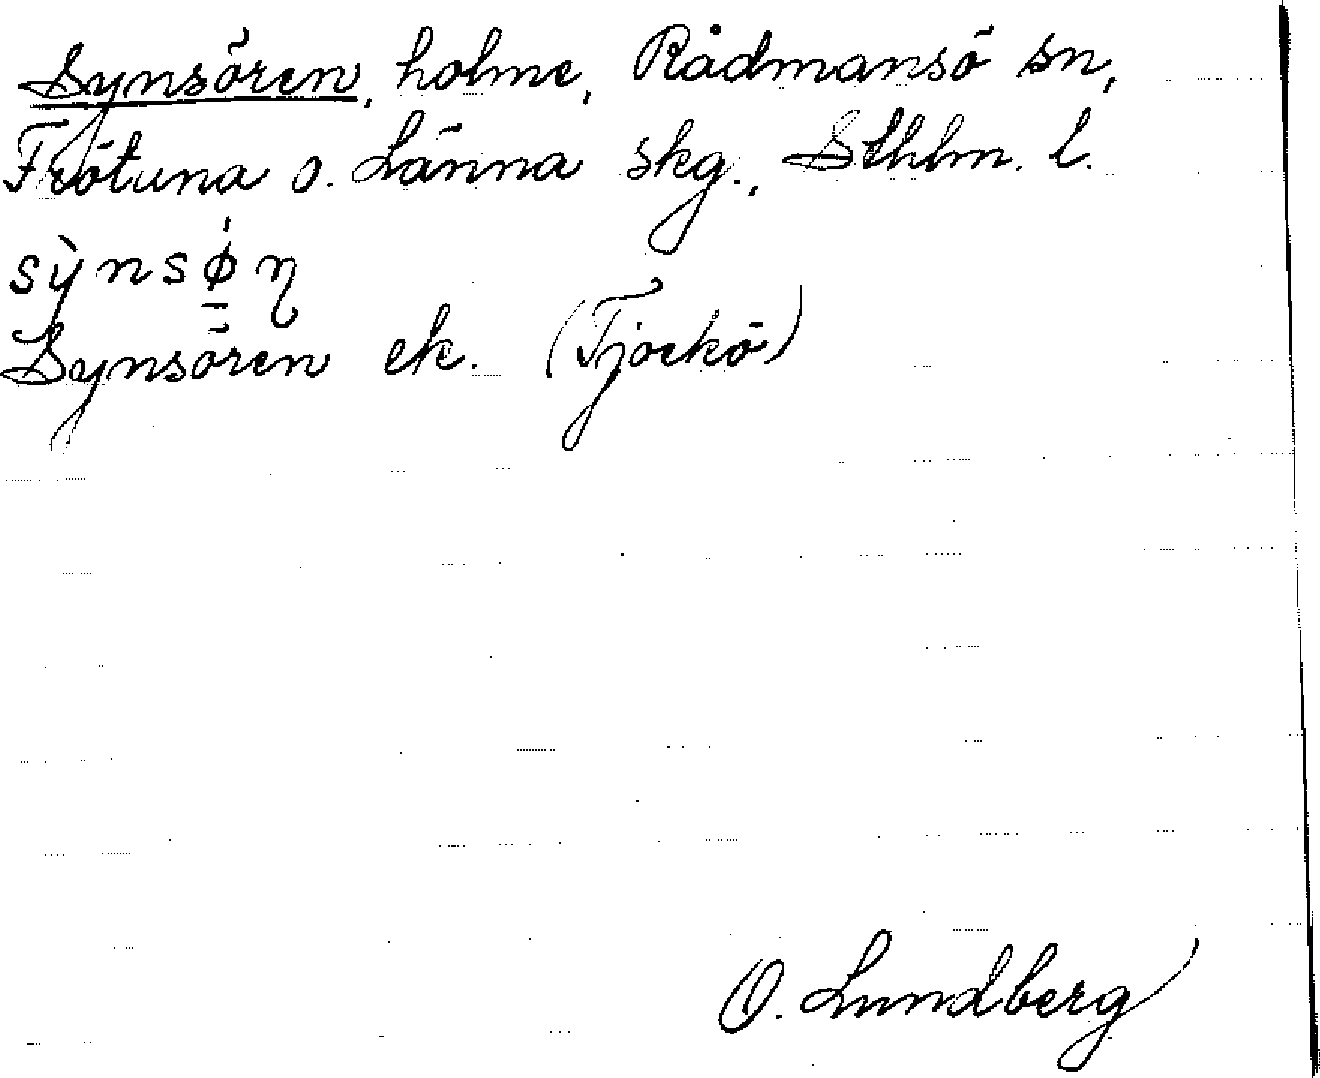 Synsören, holme, Rådmansö sn,
Frötuna o. Länna skg., Sthlm. l.
sỳnsø̠̍ŋ
Synsören ek. (Tjockö)
O. Lundberg